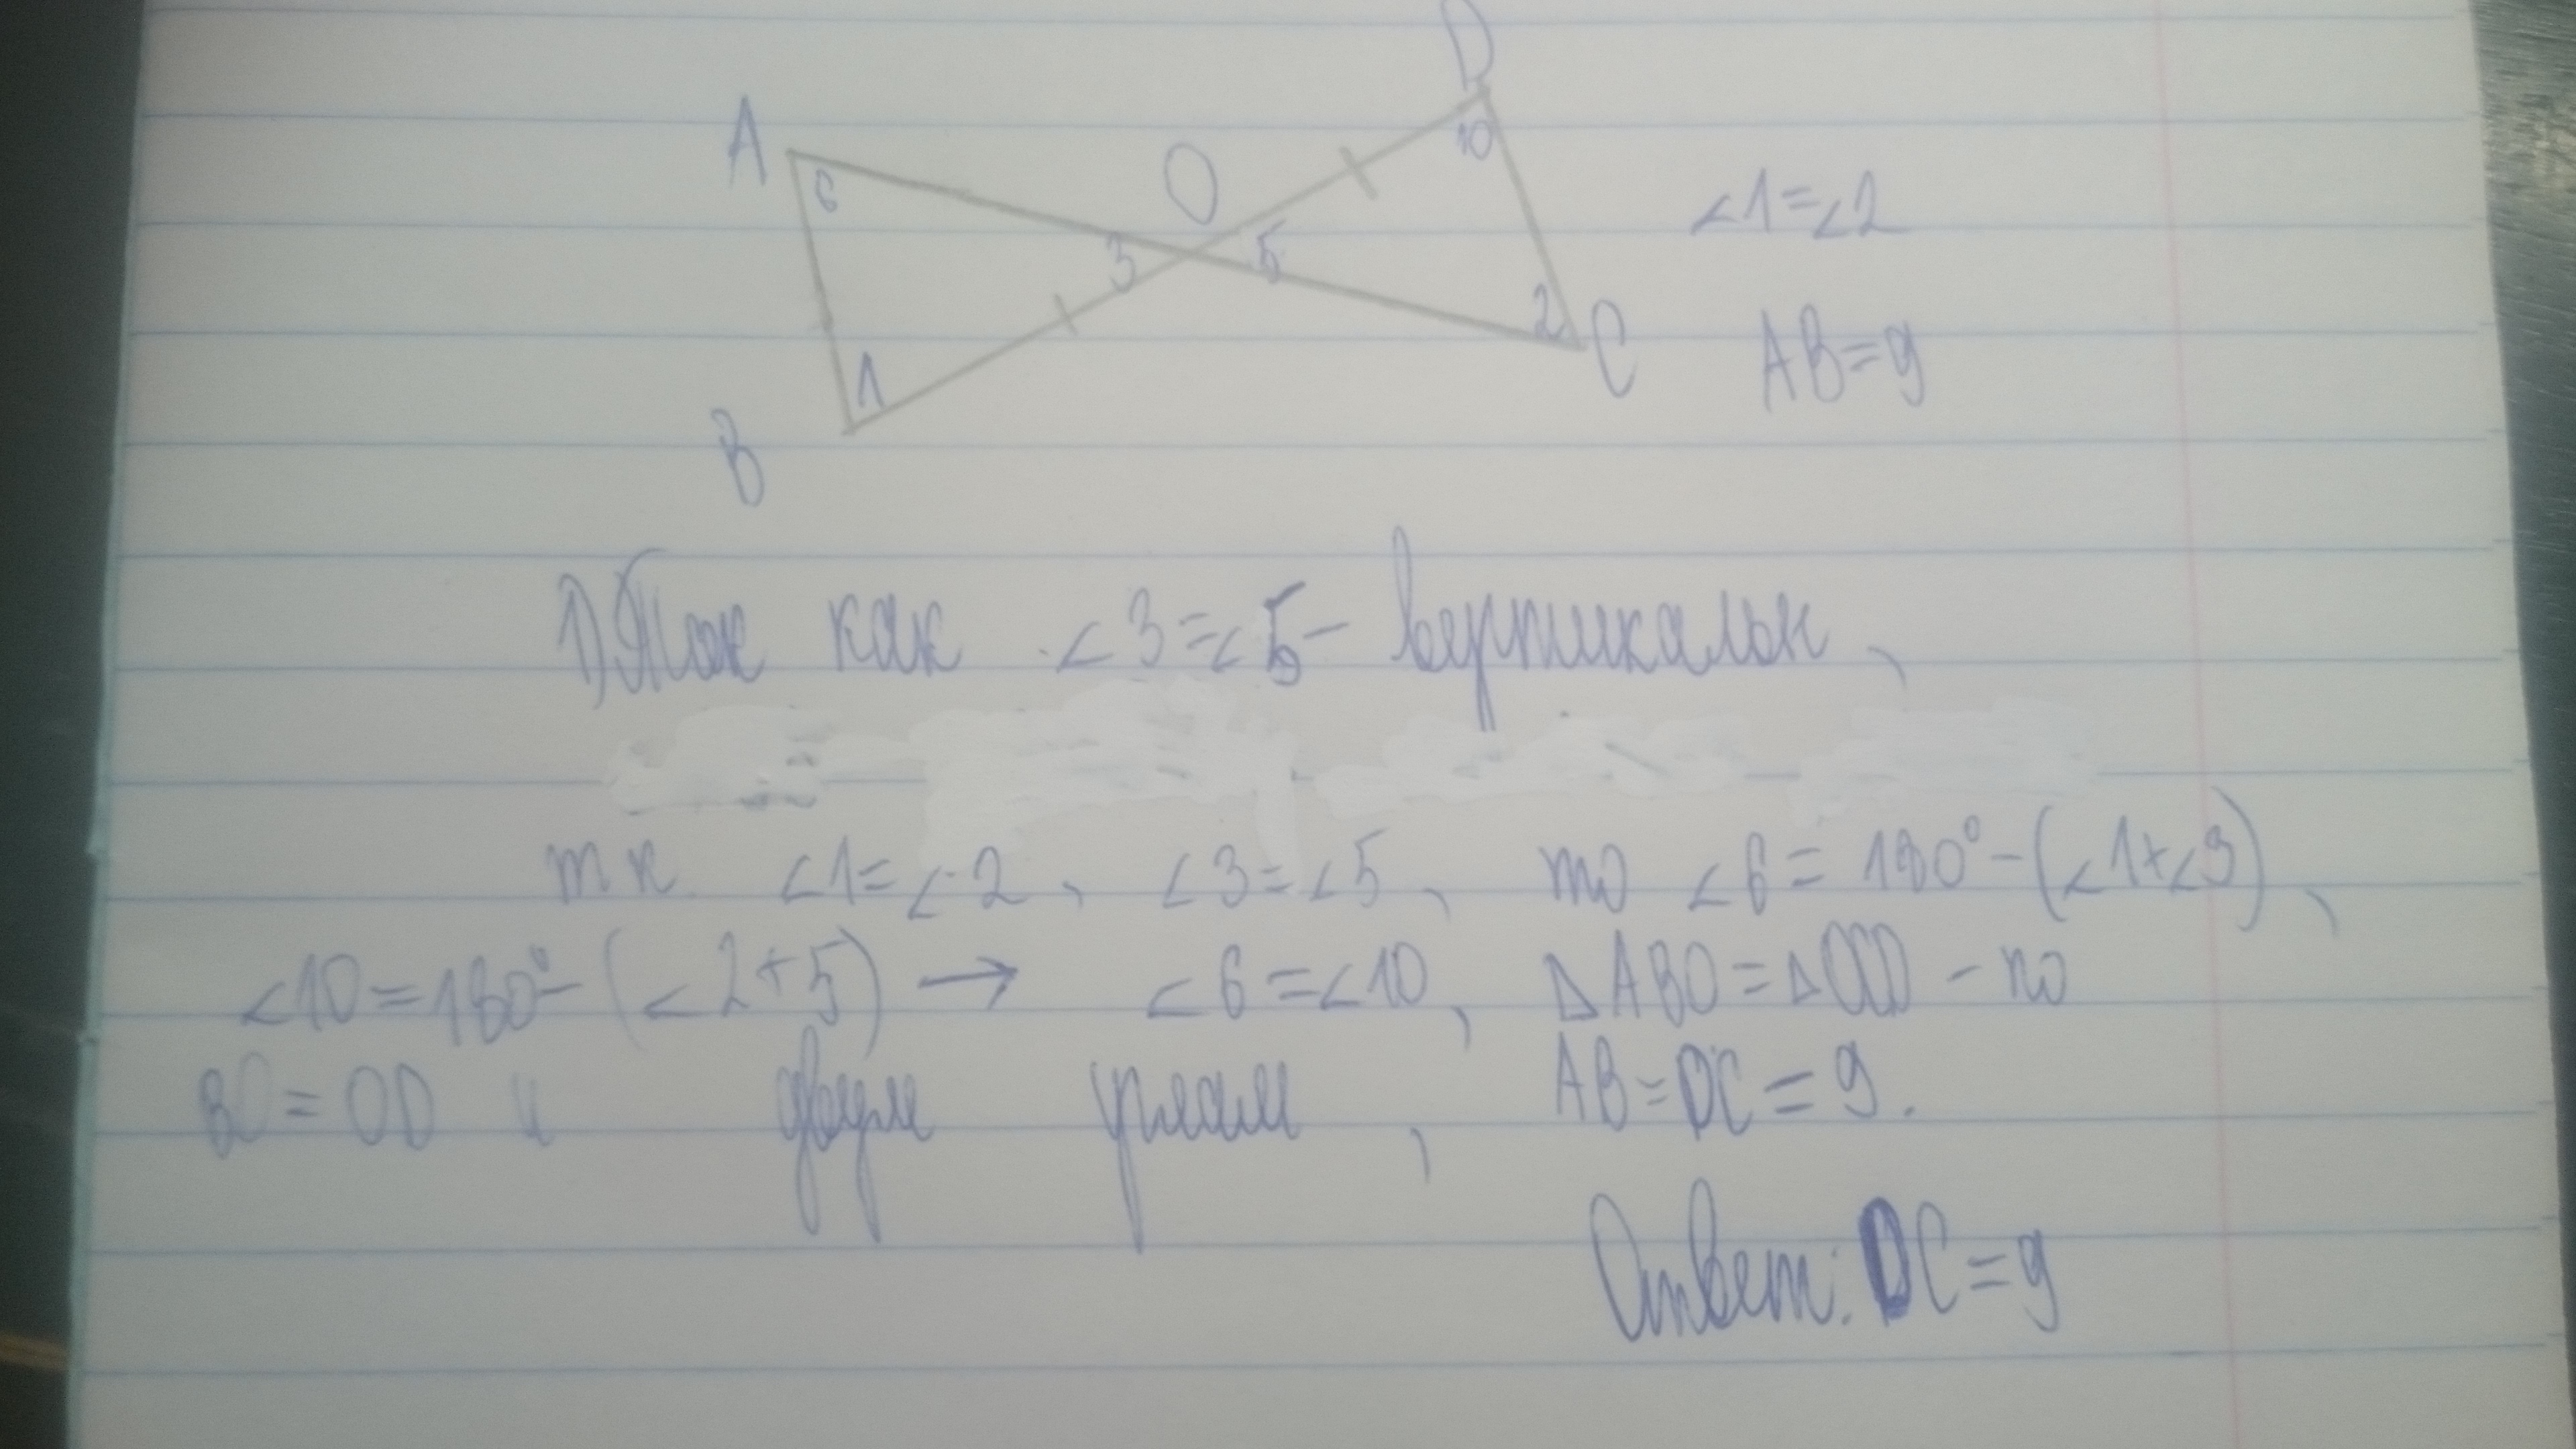 D
A
10
6
O
∠1=∠2
3
5
2
C
AB=9
1
B
1) Так как ∠3=∠5- вертикальн,
т к ∠1=∠2, ∠3=∠5, то ∠6= 180°-(∠1+∠3),
∠10=180°-(∠2+5) → ∠6=∠10, ΔABO=ΔOCD - по
BO=OD и двум углам, AB=DC=9.
Ответ: DC=9